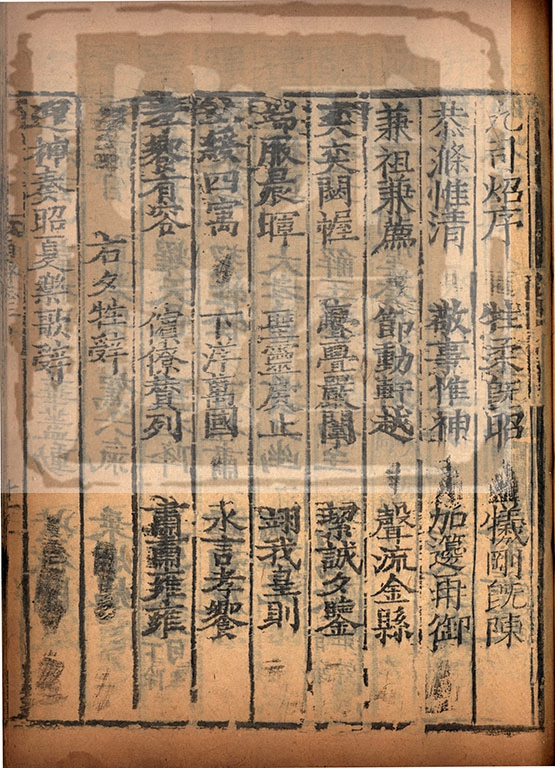 司炤序　牲柔既昭　犧剛既陳
恭滌惟清　敬事惟神　加籩再御
兼祖兼薦　節動軒越　聲流金縣
奕奕閟幄　亹亹嚴闈　潔誠夕鑒
端服晨暉　聖靈戾止　翊我皇則
上綏四寓　下洋萬國　永言孝饗
孝饗有容　儐僚贊列　肅肅雍雍
右夕牲辭
迎神奏昭夏樂歌辭